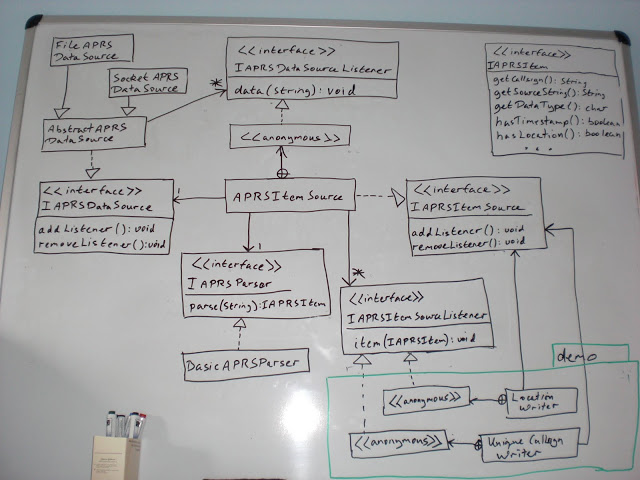 File APRS
Data Source
Socket APRS
Data Source
Abstract APRS
Data Source
<<interface>>
IAPRSDataSourceListener
data(String): void
*
<<anonymous>>
<<interface>>
IAPRSItem
getCallsign(): String
getSourceString(): String
getDataType(): char
hasTimestamp(): boolean
hasLocation(): boolean
...
<<interface>>
IAPRSDataSource
addListener(): void
removeListener(): void
1
APRSItemSource
<<interface>>
IAPRSItemSource
addListener(): void
removeListener(): void
1
<<interface>>
IAPRSParser
parse(String): IAPRSItem
BasicAPRSParser
*
<<interface>>
IAPRSItemSourceListener
item(IAPRSItem): void
demo
<<anonymous>>
Location
Writer
<<anonymous>>
Unique Callsign
Writer